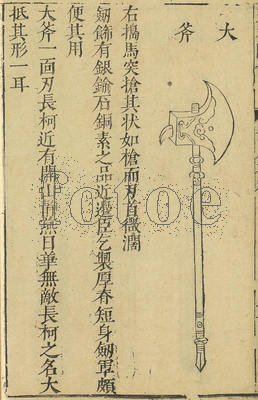 大斧
右擣馬突槍其状如槍而刃首微濶
劒飾有銀鍮石銅素之品近邊臣乞製厚脊短身劒軍頗
便其用
大斧一面刃長柯近有開山靜燕日華無敵長柯之名大
抵其形一耳
fotoe